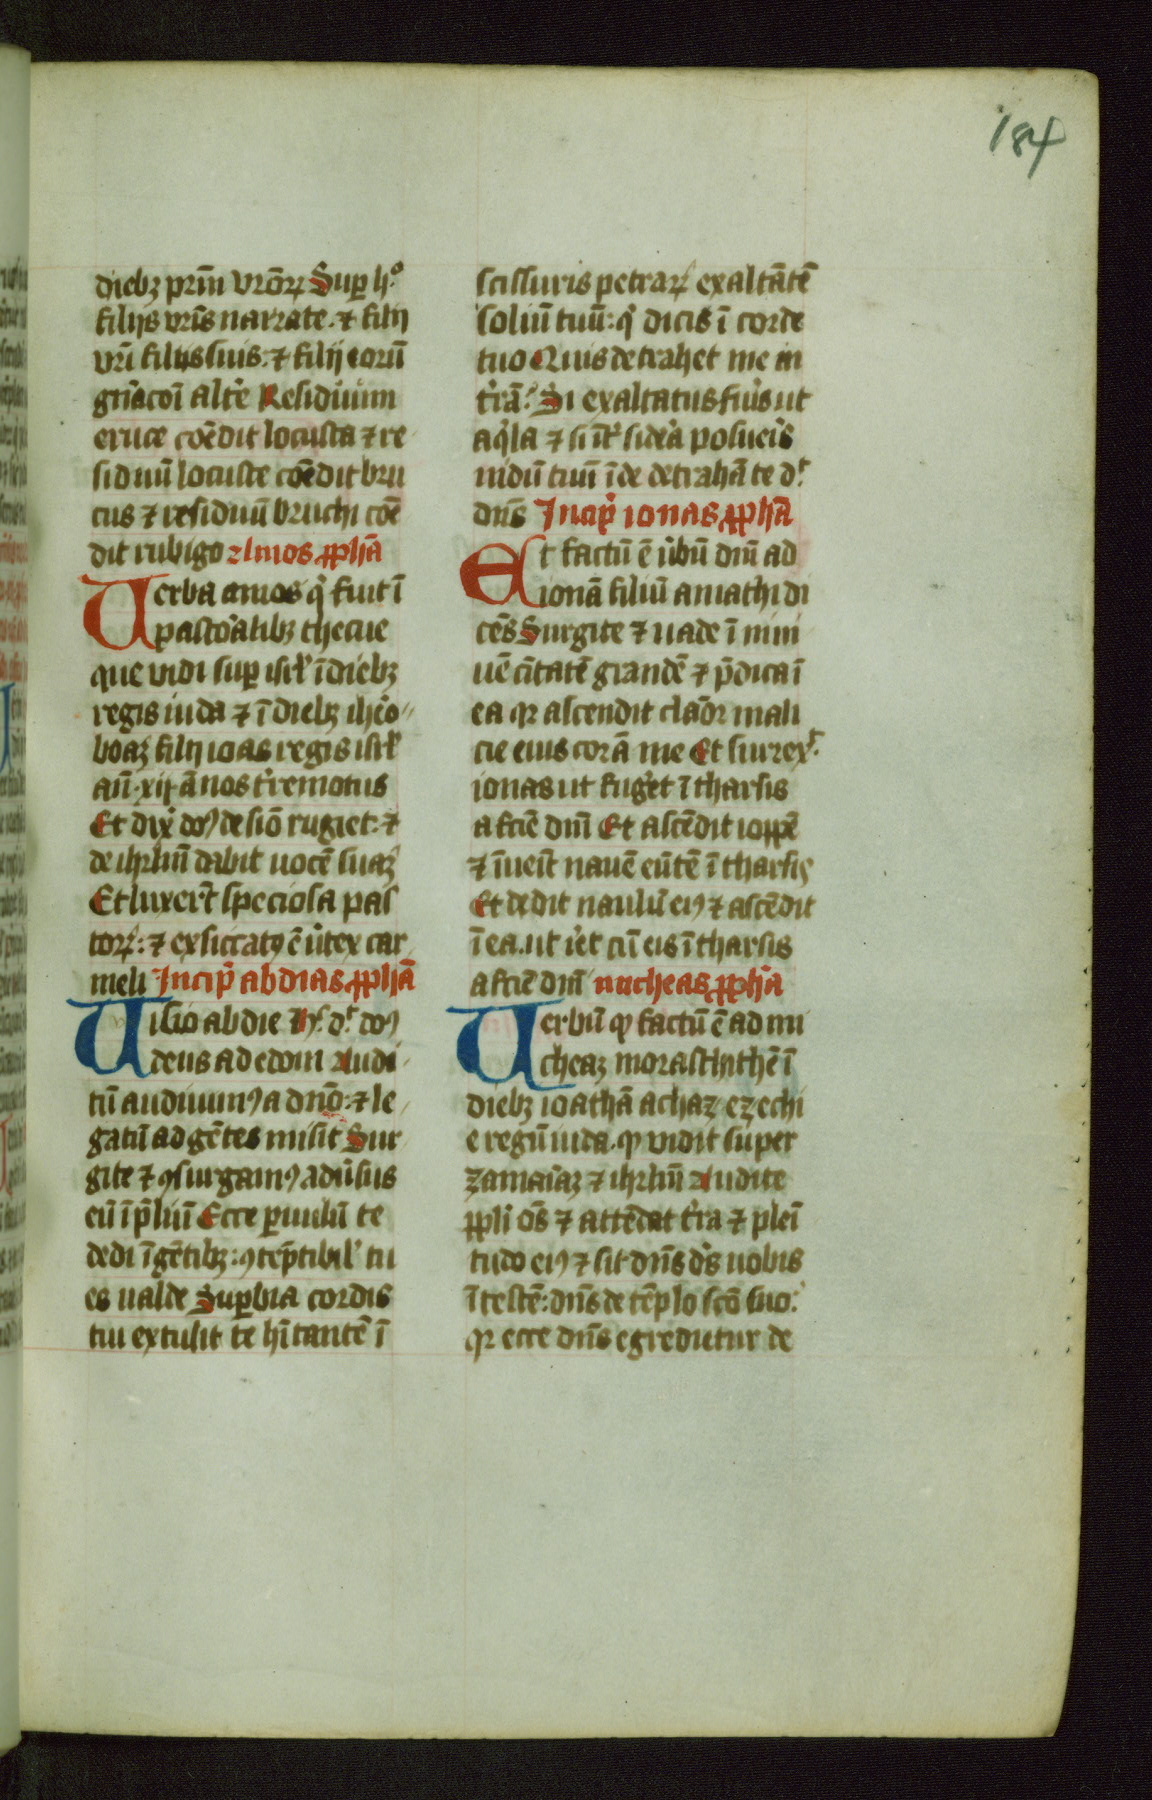 184
diebꝫ pr̄m vr̄oꝝ Suꝑ h°
filijs vr̄is narrate. ⁊ filij
vr̄i filiis suis: ⁊ filij eorū
gn̄acōi alte᷑ Residuum
eruce cōedit locusta ⁊ re
siduū locuste cōedit bru
cus ⁊ residuū bruchi cōe
dit rubigo Amos ꝓphā
Uerba amos q̇ fuit ī
pastoralibꝫ thecue
que vidi suꝑ isrl̄ ī diebꝫ
regis iuda ⁊ ī diebꝫ iheo
boaꝫ filij ioas regis isrl̄
an̄ .xij ānos t᷑remotus
Et dix᷑ dos de siō rugiet: ⁊
de ihrlm̄ dabit uocē suaꝫ
Et luxer̄t speciosa pas
toꝝ: ⁊ exsiccatꝰ ē u᷑tex car
meli Incip̄ abdias ꝓphā
Uisio abdie H᷑ d᷑ dos
deus ad edom Audi
tū audiuimꝰ a dn̄o: ⁊ le
gatū ad gētes misit Sur
gite ⁊ ꝯsurgamꝰ adu᷑sus
eū ī p̄liū Ecce ꝑuulū te
dedi ī gētibꝫ: ꝯtēptibil᷑ tu
es ualde Suꝑbia cordis
tui extulit te hītantē ī
scissuris petraꝝ exaltātē
soliū tuū: q̇ dicis ī corde
tuo Quis detrahet me in
t᷑rā? Si exaltatus fu᷑is ut
aq̇la ⁊ si īt᷑ side᷑a posue᷑is
nidū tuū īde detrahā te d᷑
dn̄s Incip᷑ ionas ꝓphā
Et factū ē u᷑bū dn̄i ad
ionā filiū amathi di
cēs Surgite ⁊ uade ī nini
uē cītatē grandē ⁊ p̄dica ī
ea qꝛ ascendit clāor mali
cie eius corā me Et surrex᷑
ionas ut fug᷑et ī tharsis
a fcīe dn̄i Et ascēdit ioppē
⁊ īueīt nauē eūtē ī tharsis
Et dedit naulū eiꝰ ⁊ ascēdit
ī ea. ut i᷑et cū eis ī tharsis
a fcīe dn̄i micheas ꝓphā
Uerbū qḋ factū ē ad mi
cheaꝫ morasthithē ī
diebꝫ ioathā achaz ezechi
e regū iuda. qḋ vidit super
zamariaꝫ ⁊ ihrlm̄ Audite
ꝓpli oēs ⁊ attēdat t᷑ra ⁊ pleī
tudo eiꝰ ⁊ sit dn̄s d᷑s uobis
ī testē: dn̄s de tēplo scō suo:
qꝛ ecce dn̄s egredietur de